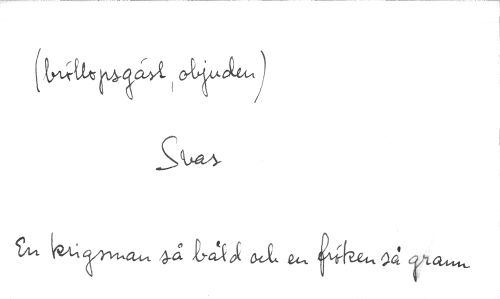 (bröllopsgäst, objuden)
Svas
En krigsman så båld och en fröken så grann